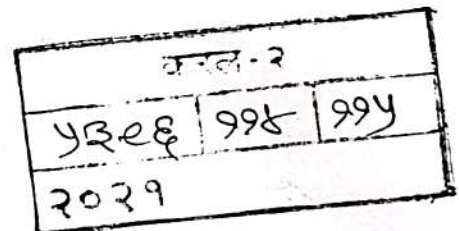 करल - २
५३९६ ११४ ११५
२०२१